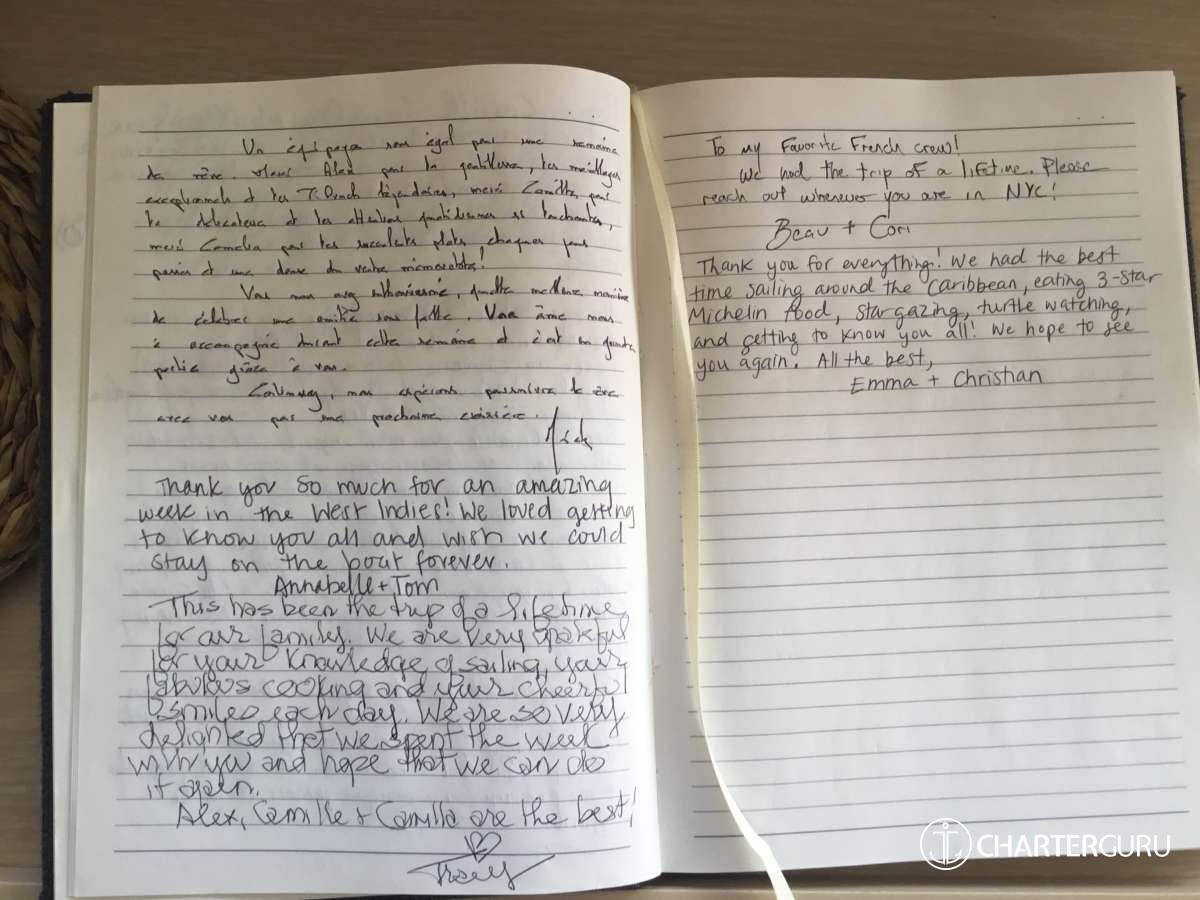 Un équipage sans égal pour une semaine
de rêve. Merci Alex pour la gentillesse, les mouillages
exceptionnels et les Ti Punch légendaires, merci Camille, pour
la délicatesse et les attentions quotidiennes si touchantes,
merci Camelia pour les succulents plats chaques jours
et une danse du ventre mémorable!
Vous nous avez enthousiasmé, quelle meilleure manière
de célébrer une amitié sans faille.
accompagné durant cette semaine et c'est en grande
partie grâce à vous.
Continuez, nous espérons poursuivre le rêve
avec vous pas une prochaine croisière.
Thank you so much for an amazing
week in the West Indies! We loved getting
to know you all and wish we could
stay on the boat forever.
Annabelle + Tom
This has been the trip of a lifetime
for our families. We are very grateful
for your knowledge of sailing, your
fabulous cooking and your cheerful
smiles each day. We are so very
delighted that we spent the week
with you and hope that we can do
it again.
Alex, Camille + Camilla are the best!
Tracey
To my Favorite French crew!
We had the trip of a lifetime. Please
reach out whenever you are in NYC!
Beau + Cori
Thank you for everything! We had the best
time sailing around the Caribbean, eating 3-star
Michelin food, stargazing, turtle watching,
and getting to know you all! We hope to see
you again. All the best,
Emma + Christian
CHARTERGURU